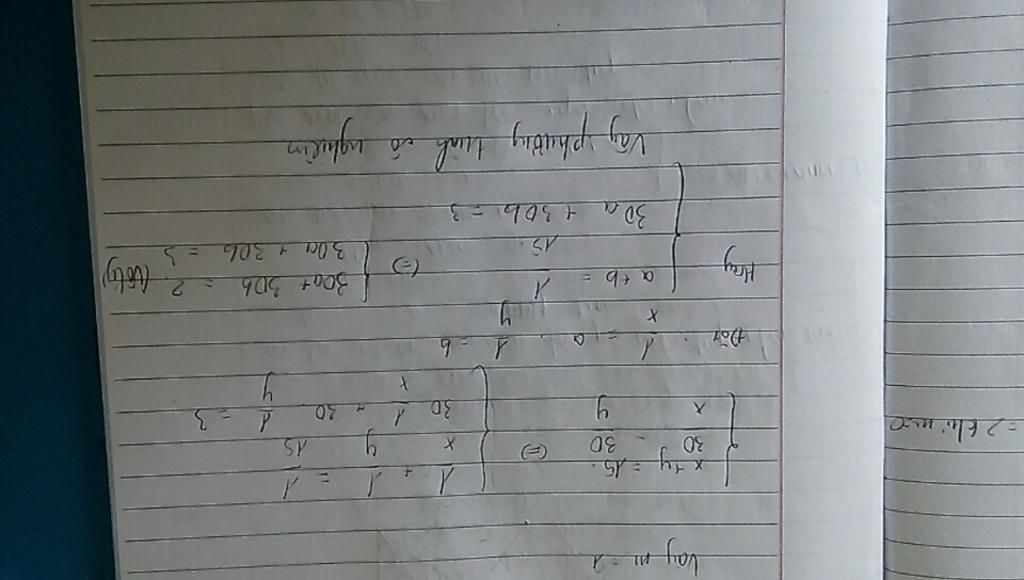 Vậy m = 1
x + y = 15.
30/x - 30/y
(=)
1/x + 1/y = 1/15
30 1/x + 30 1/y = 3
Đặt 1/x = a . 1/y = b
Hay
a + b = 1/15.
30a + 30b = 3
(=)
30a + 30b = 2 (Vô lý)
30a + 30b = 3
Vậy phương trình có nghiệm
= 2 khi m=0